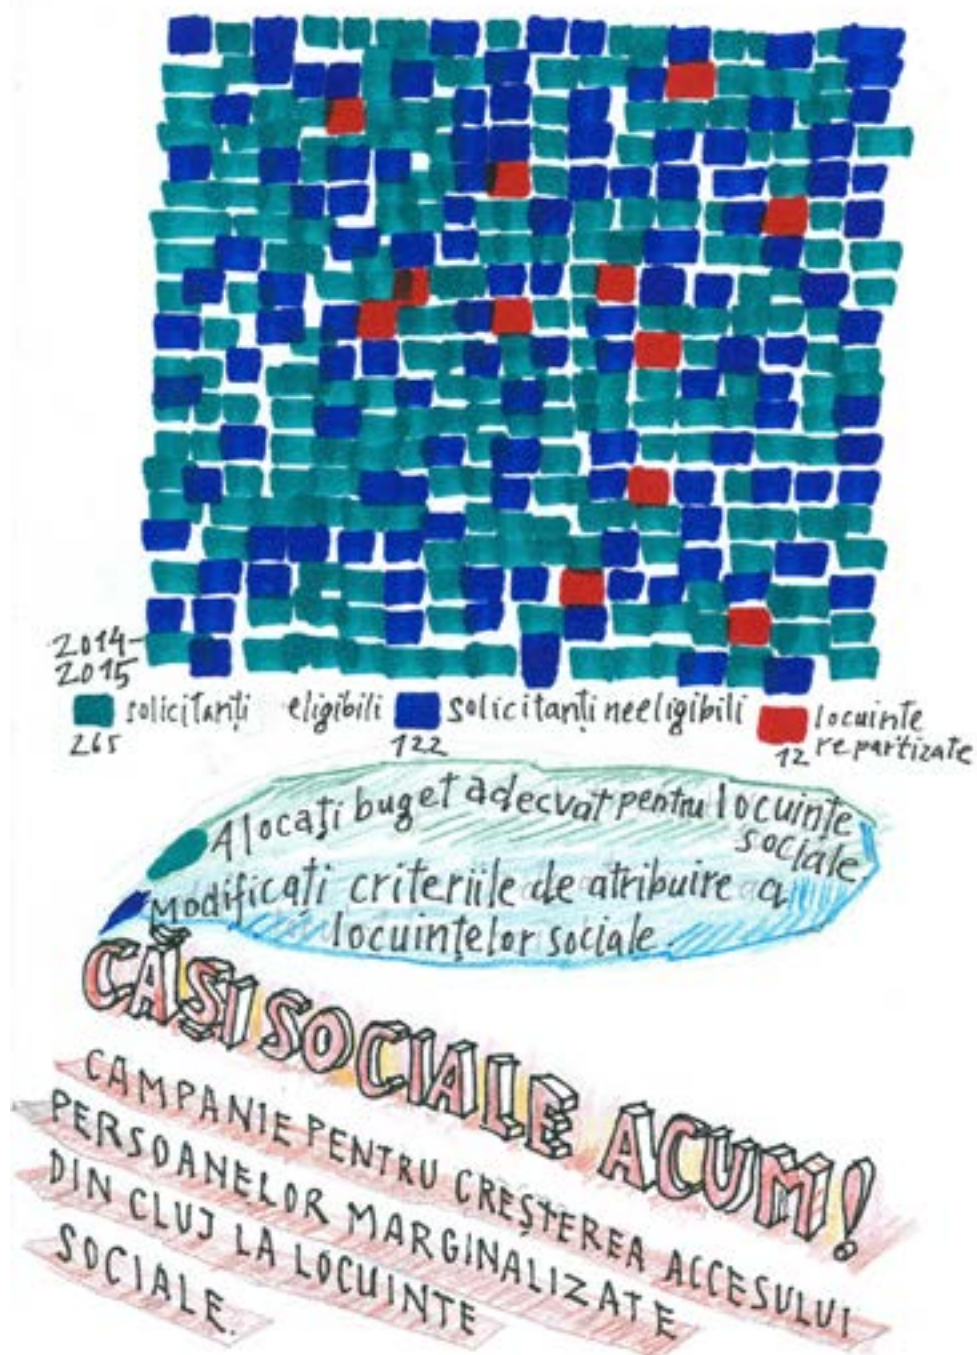 2014-
2015
solicitanți eligibili
265
solicitanți neeligibili
122
locuințe
repartizate
12
Alocați buget adecvat pentru locuințe
sociale.
Modificați criteriile de atribuire a
locuințelor sociale.
CĂȘI SOCIALE ACUM!
CAMPANIE PENTRU CREȘTEREA ACCESULUI
PERSOANELOR MARGINALIZATE
DIN CLUJ LA LOCUINȚE
SOCIALE.